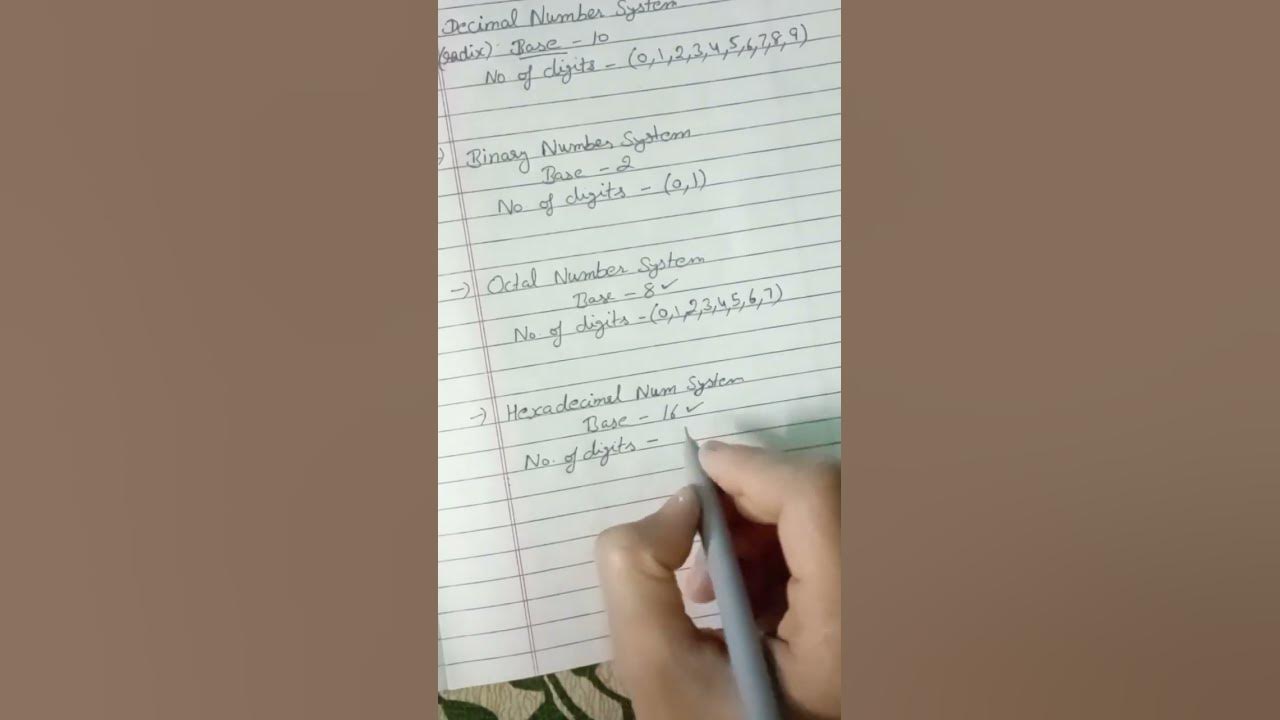 Decimal Number System
(radix): Base - 10
No of digits - (0,1,2,3,4,5,6,7,8,9)
Binary Number System
Base - 2
No of digits - (0,1)
→ Octal Number System
Base - 8 ✓
No of digits - (0,1,2,3,4,5,6,7)
→ Hexadecimal Num System
Base - 16 ✓
No. of digits -